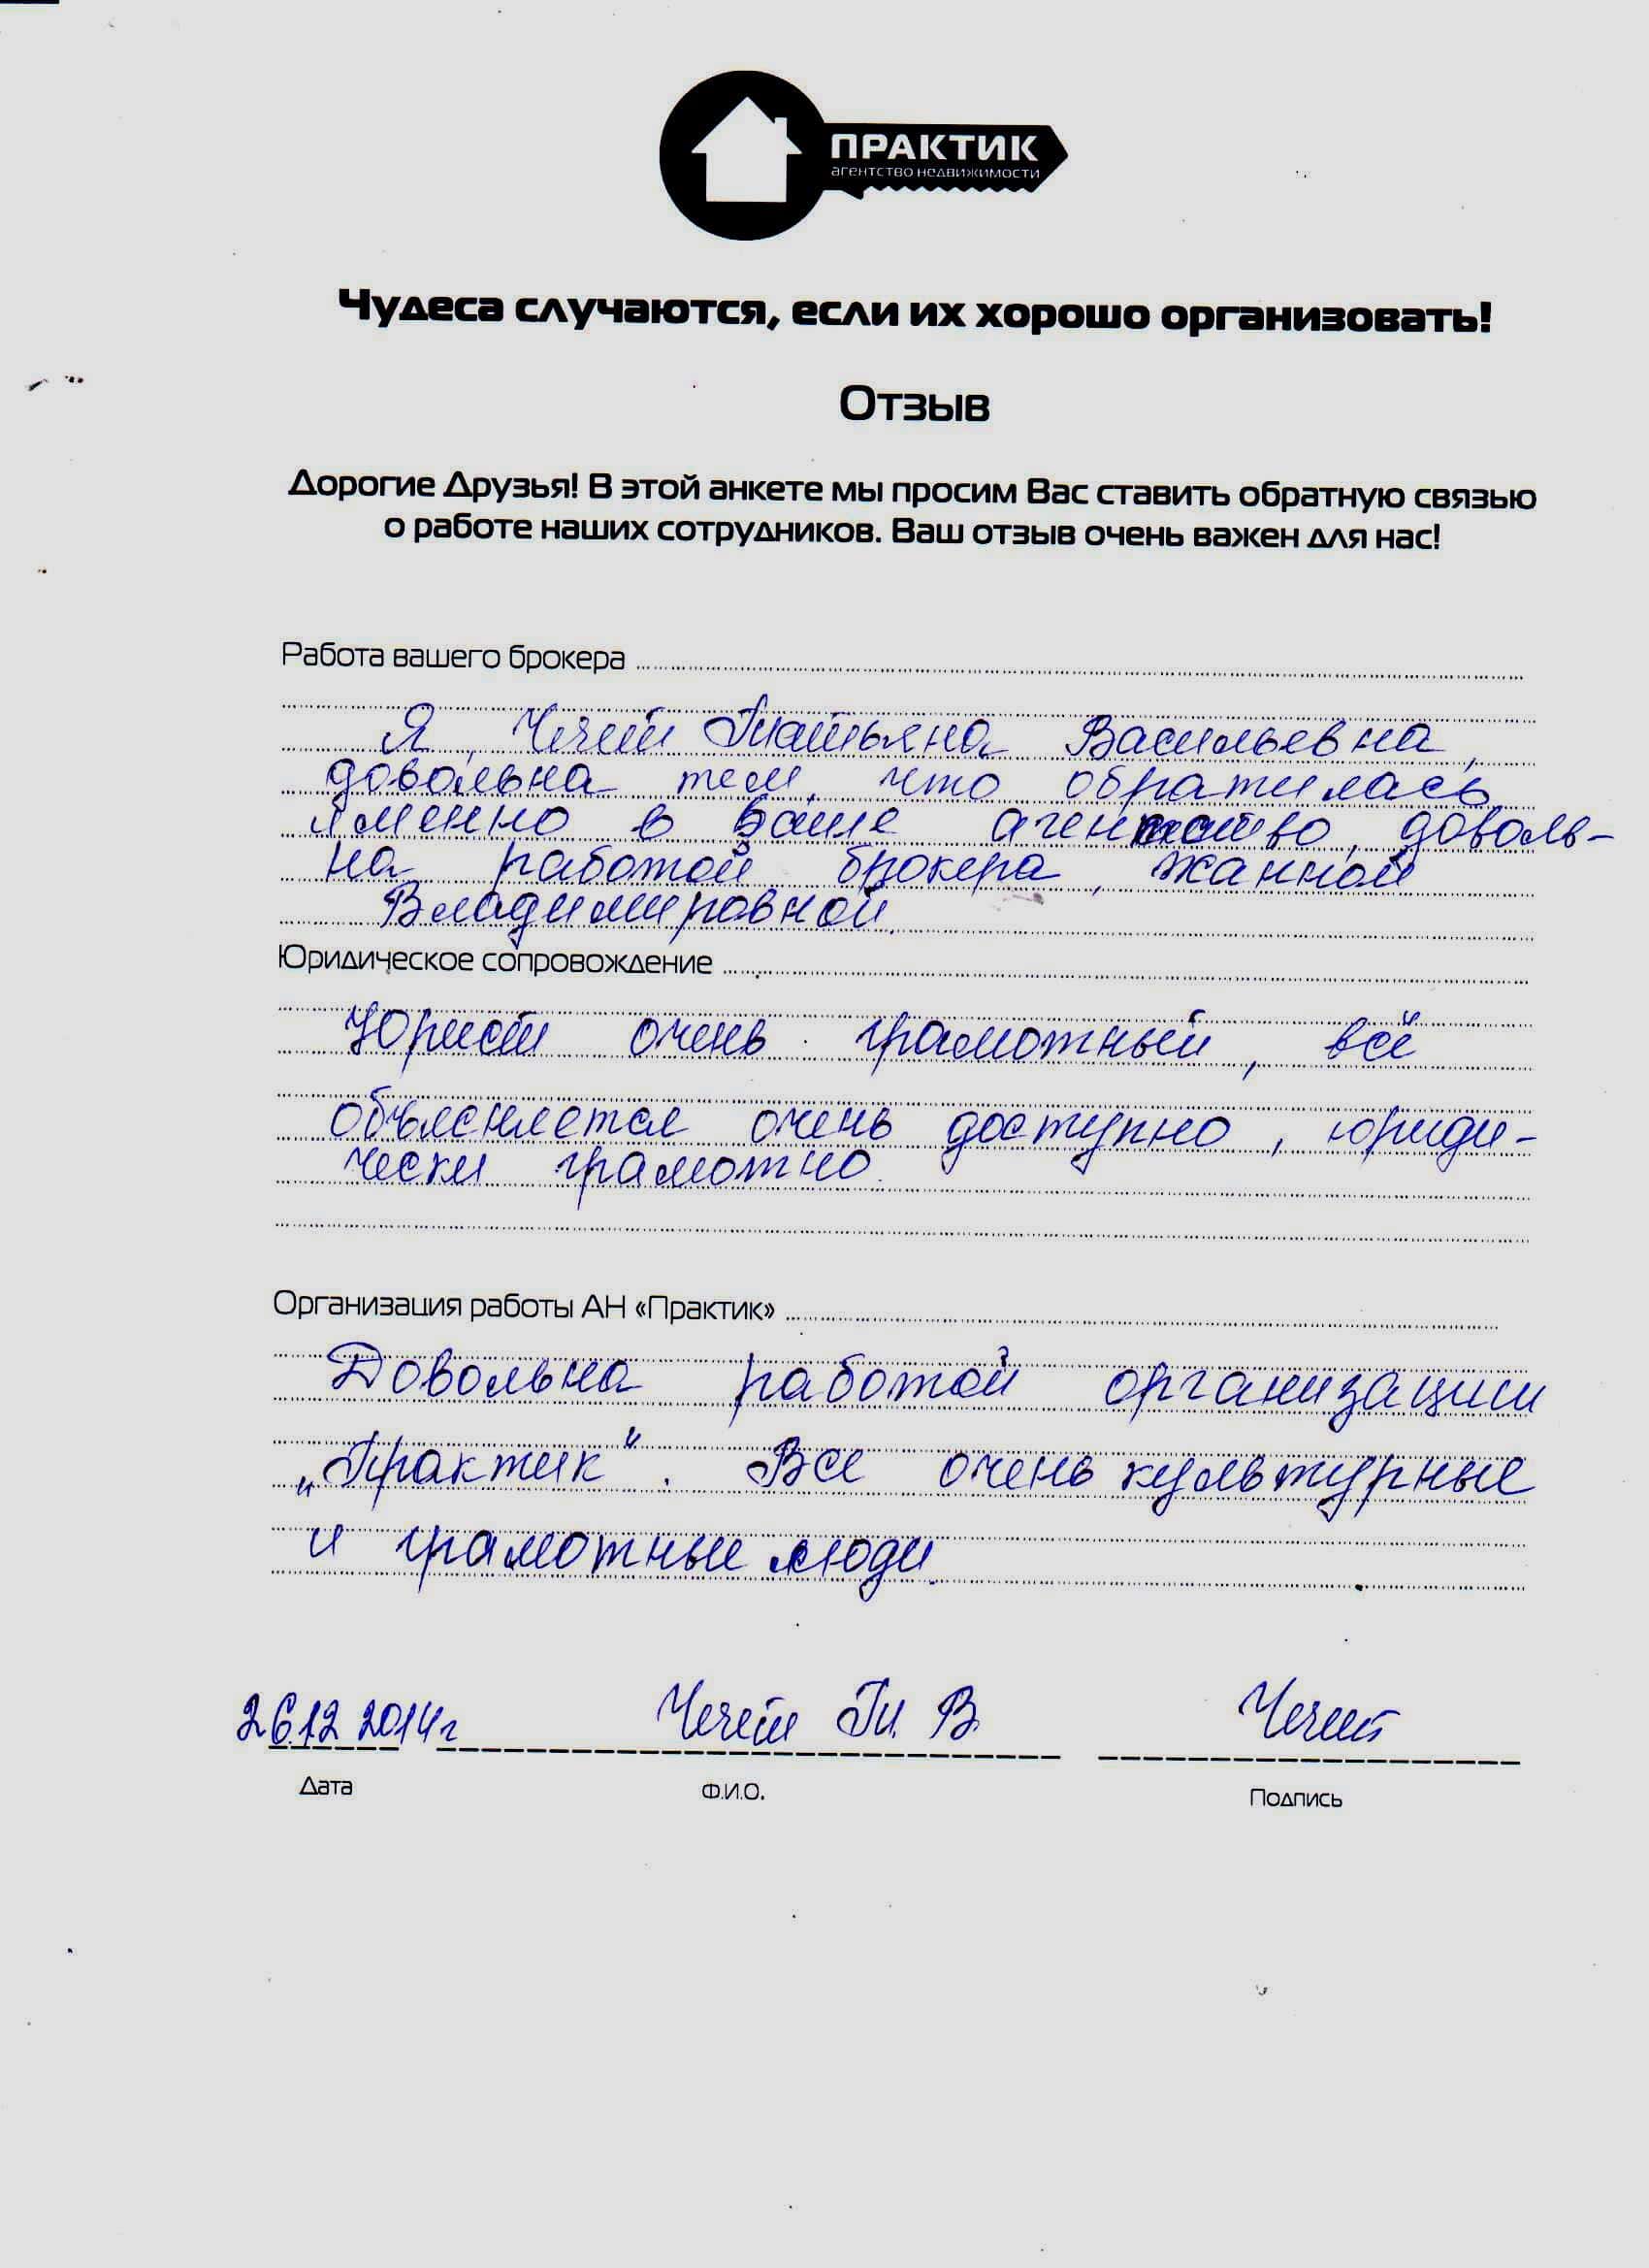 ПРАКТИК
агентство недвижимости
Чудеса случаются, если их хорошо организовать!
Отзыв
Дорогие Друзья! В этой анкете мы просим Вас ставить обратную связью
о работе наших сотрудников. Ваш отзыв очень важен для нас!
Работа вашего брокера
Я, Чечет Татьяна Васильевна,
довольна тем, что обратилась
именно в ваше агентство, доволь-
на работой брокера, Жанной
Владимировной.
Юридическое сопровождение
Юрист очень грамотный, всё
объясняется очень доступно, юриди-
чески грамотно.
Организация работы АН «Практик»
Довольна работой организации
„Практик“. Все очень культурные
и грамотные люди.
26.12 2014г Чечет Т. В. Чечет
Дата Ф.И.О. Подпись